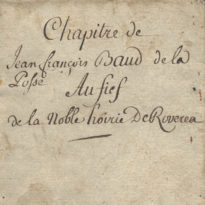 Chapitre de
Jean françois Baud de la
Posse
Au fief
de la Noble hoirie De Roverea